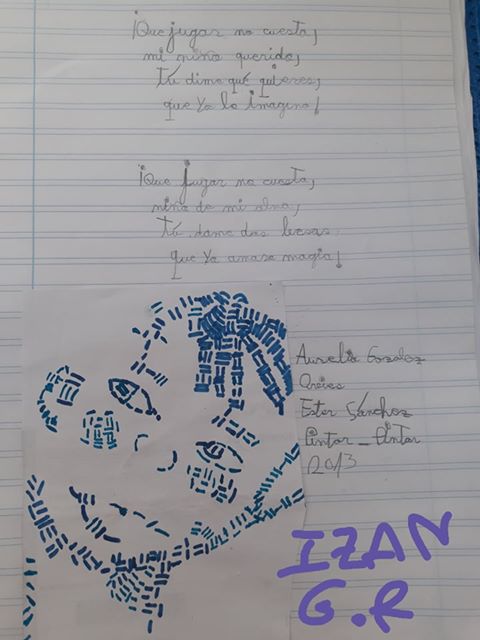 ¡Que jugar no cuesta,
mi niño querido,
tú dime qué quieres,
que yo lo imagino!
¡Que jugar no cuesta,
niño de mi alma,
tú dame dos besos,
que yo amaso magia!
Aurelia González
Ester Sánchez
Pintar_Pintar
2013
IZAN
G.R